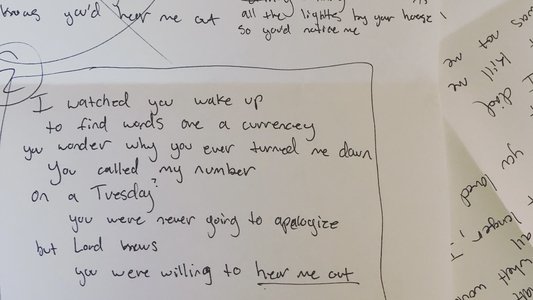 knows you'd hear me out
all the lights by your house
so you'd notice me
2
I watched you wake up
to find words are a currencey
you wonder why you ever turned me down
You called my number
on a Tuesday?
you were never going to apologize
but Lord knows
you were willing to hear me out
was
not me
kill me
I did
you loved
longer, I
all
what
would